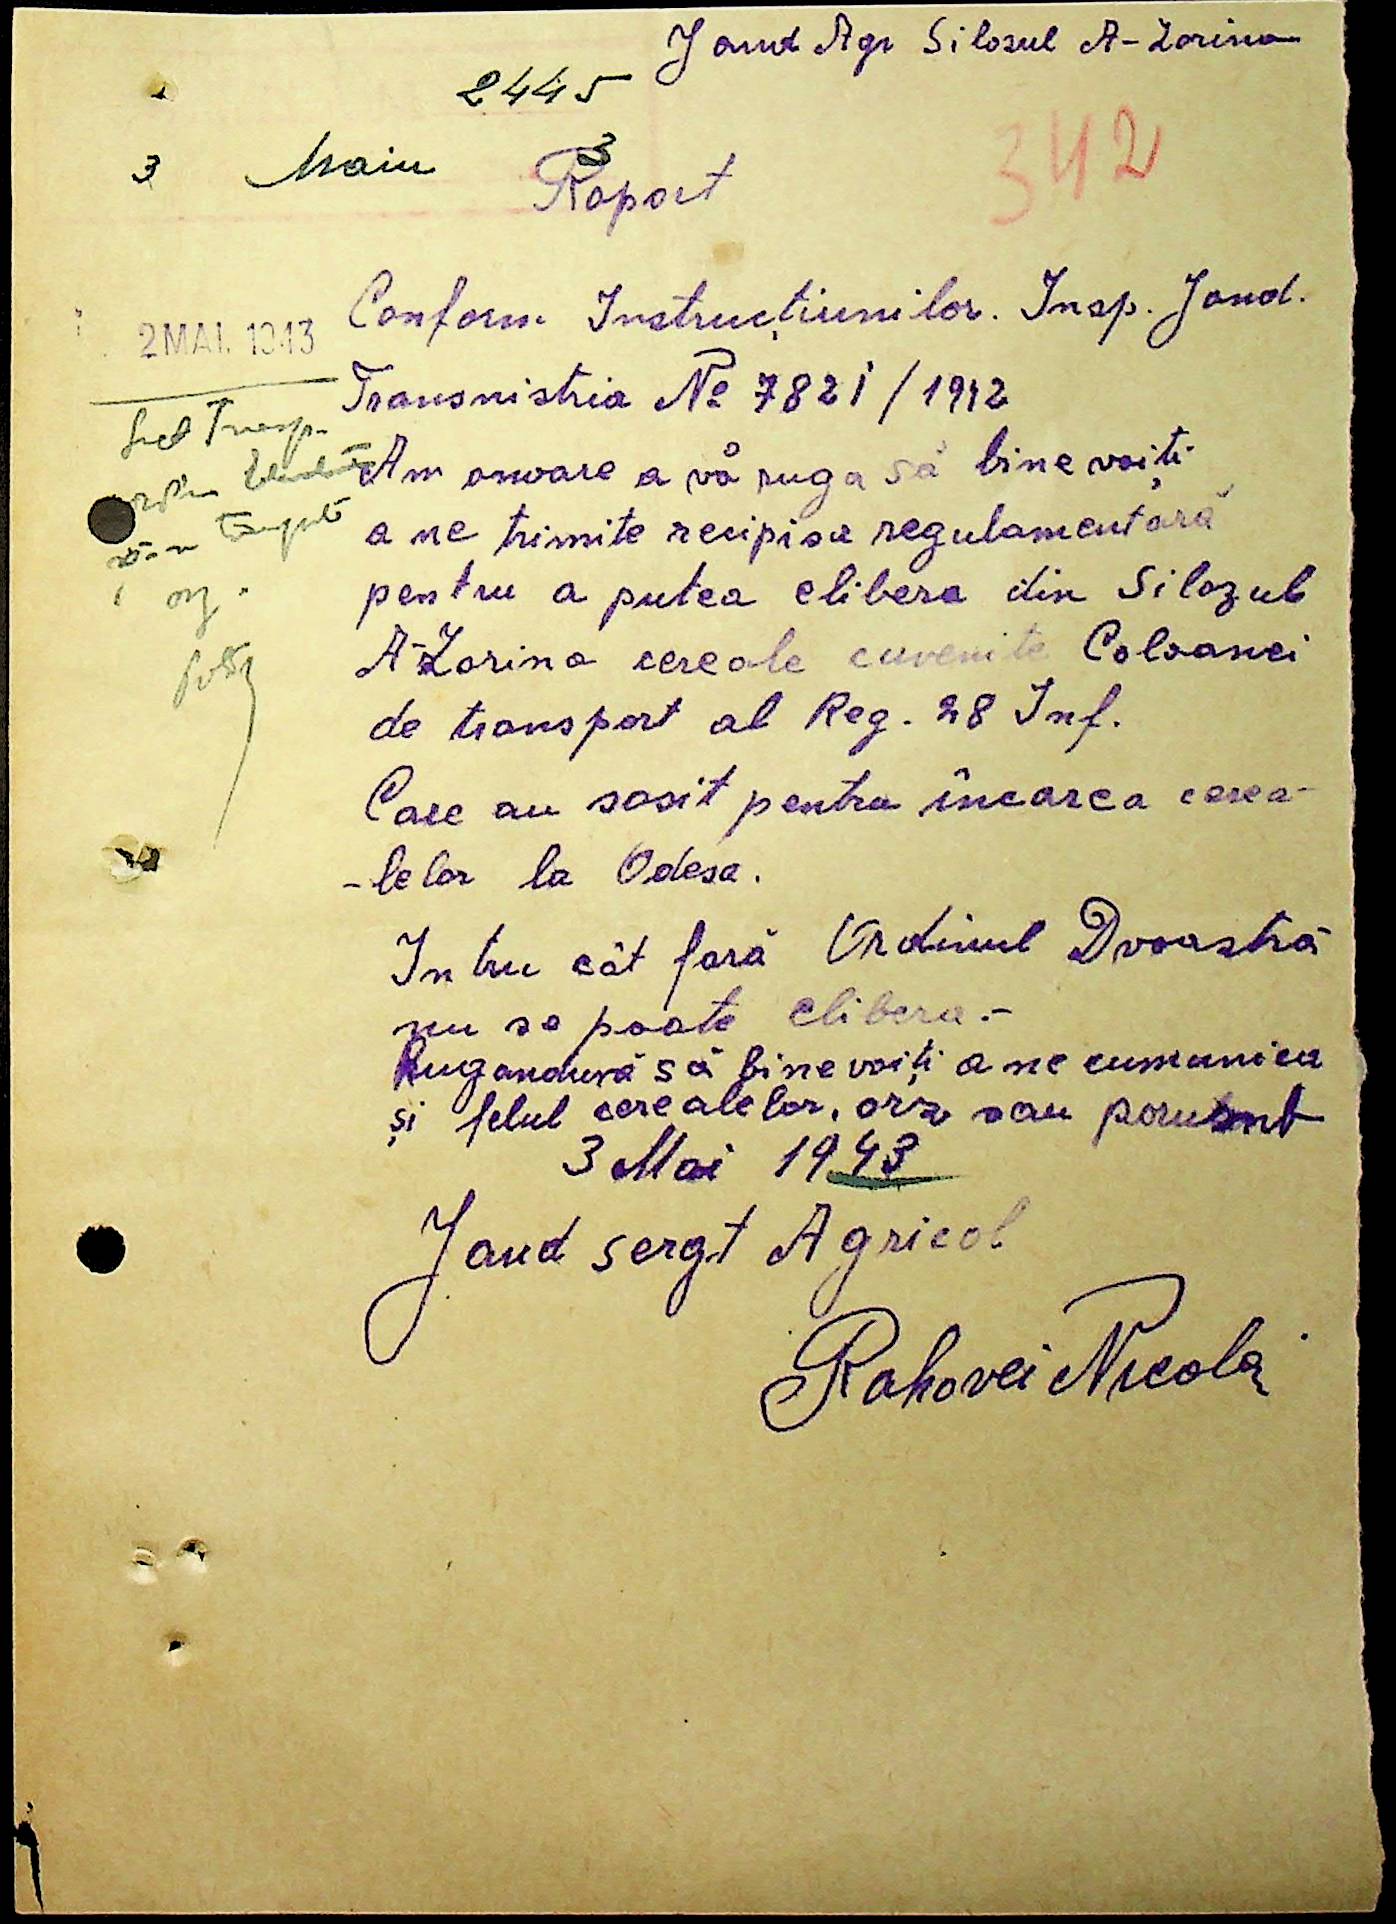 Jand Agr Silozul A-Zorina
2445
342
3 Maiu 3
Raport
Conform Instrucțiunilor. Insp. Jand.
2 MAI. 1943
Transnistria № 7821/1942
Am onoare a vă ruga să bine voiți
a ne trimite recipisa regulamentară
pentru a putea elibera din Silozul
A-Zorina cereale cuvenite Coloanei
de transport al Reg. 28 Inf.
Care au sosit pentru încarca cerea-
-lelor la Odesa.
Intru cât fară Ordinul Dvoastră
nu se poate elibera.-
Ruganduvă să bine voiți a ne cumunica
și felul cerealelor, orz sau porumb
3 Mai 1943
Jand sergt Agricol
Rahovei Nicolai